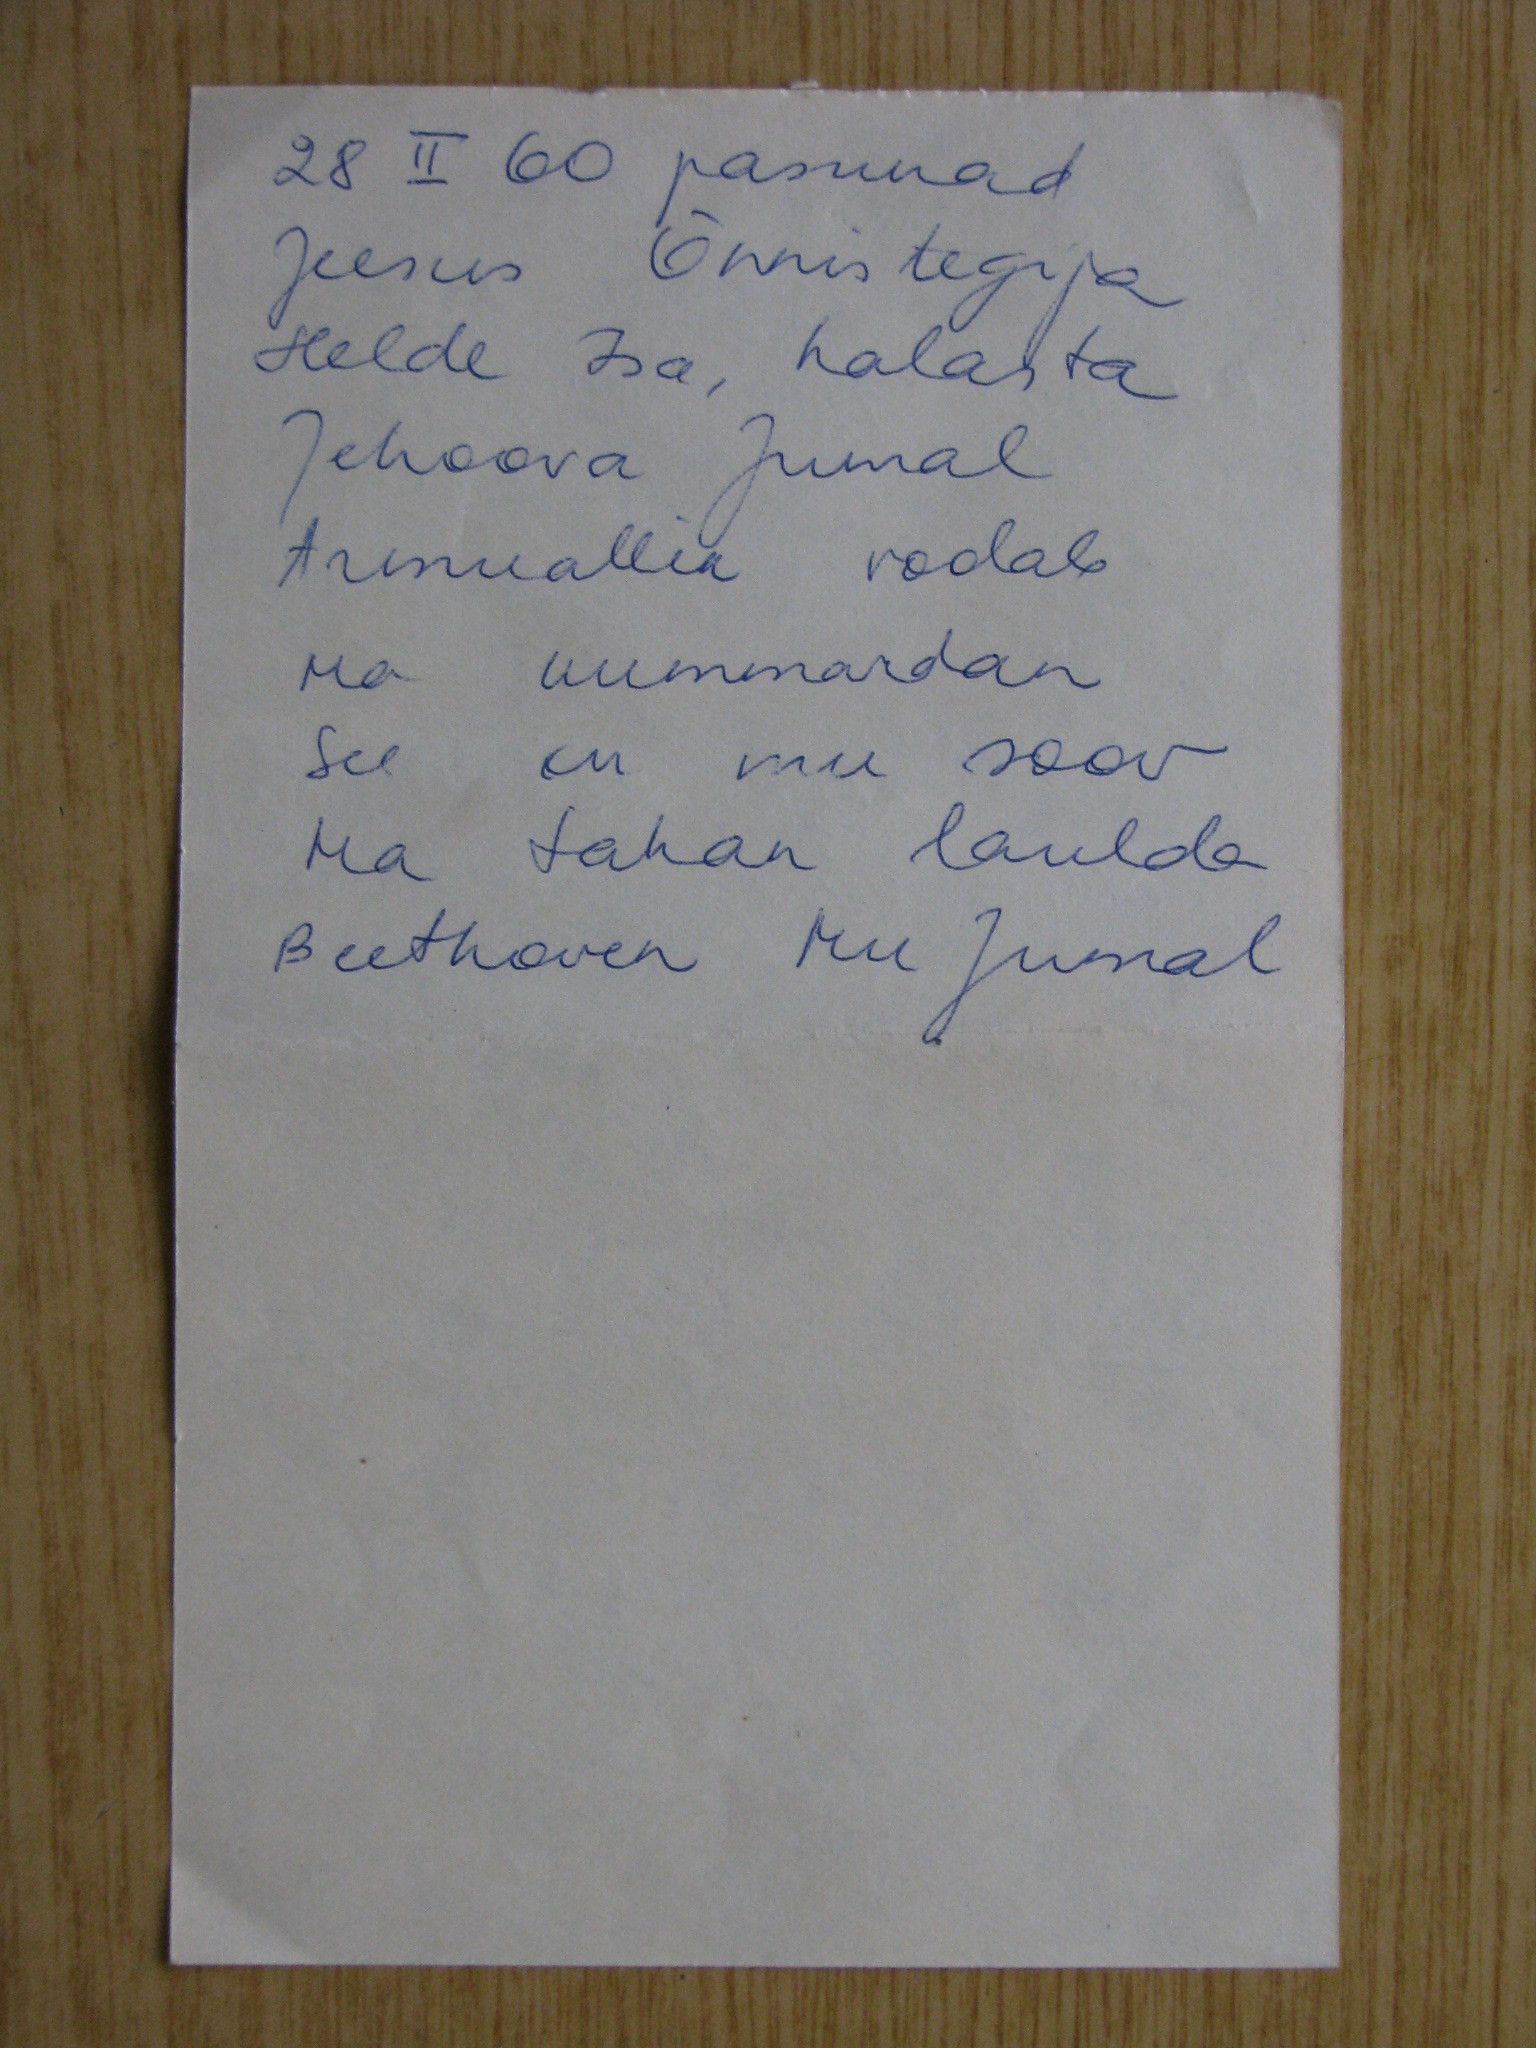 28 II 60 pasunad
Jeesus Õnnistegija
Helde Isa, halasta
Jehoova Jumal
Armuallik voolab
Ma kummardan
See on mu soov
Ma tahan laulda
Beethoven Mu Jumal